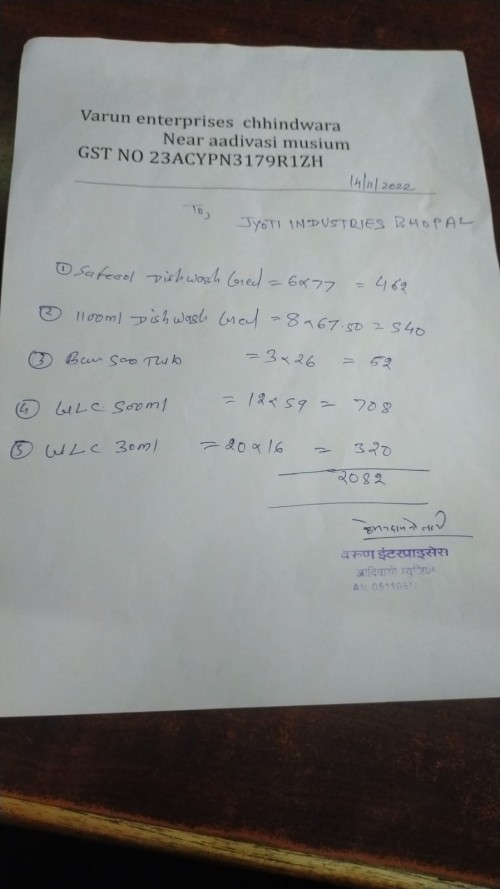 Varun enterprises chhindwara
Near aadivasi musium
GST NO 23ACYPN3179R1ZH
14/11/2022
To,
JYOTI INDUSTRIES BHOPAL
① Safecol Dishwash Gel = 6x77 = 462
② 1100ml Dishwash Gel = 8x67.50 = 540
③ Bar 500 = 3x26 = 52
④ WLC 500ml = 12x59 = 708
⑤ WLC 30ml = 20x16 = 320
2082
वरुण इंटरप्राइसेस
आदिवासी म्युजियम